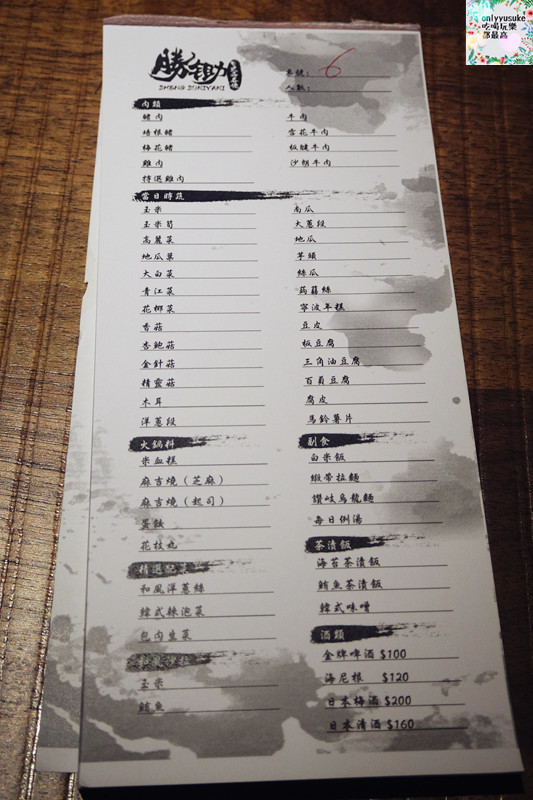 onlyyusuke
吃喝玩樂
都最高
勝鋤
SHENG SUKIYAKI
桌號： 6
人數：
肉類
豬肉
培根豬
梅花豬
雞肉
特選雞肉
牛肉
雪花牛肉
板腱牛肉
沙朗牛肉
當日時蔬
玉米
玉米筍
高麗菜
地瓜葉
大白菜
青江菜
花椰菜
香菇
杏鮑菇
金針菇
精靈菇
木耳
洋蔥段
南瓜
大蔥段
地瓜
芋頭
絲瓜
蒟蒻絲
寧波年糕
豆皮
板豆腐
三角油豆腐
百頁豆腐
腐皮
馬鈴薯片
火鍋料
米血糕
麻吉燒（芝麻）
麻吉燒（起司）
蛋餃
花枝丸
精選
和風洋蔥絲
韓式辣泡菜
包肉生菜
玉米
鮪魚
副食
白米飯
緞帶拉麵
讚岐烏龍麵
每日例湯
茶漬飯
海苔茶漬飯
鮪魚茶漬飯
韓式味噌
酒類
金牌啤酒 $100
海尼根 $120
日本梅酒 $200
日本清酒 $160